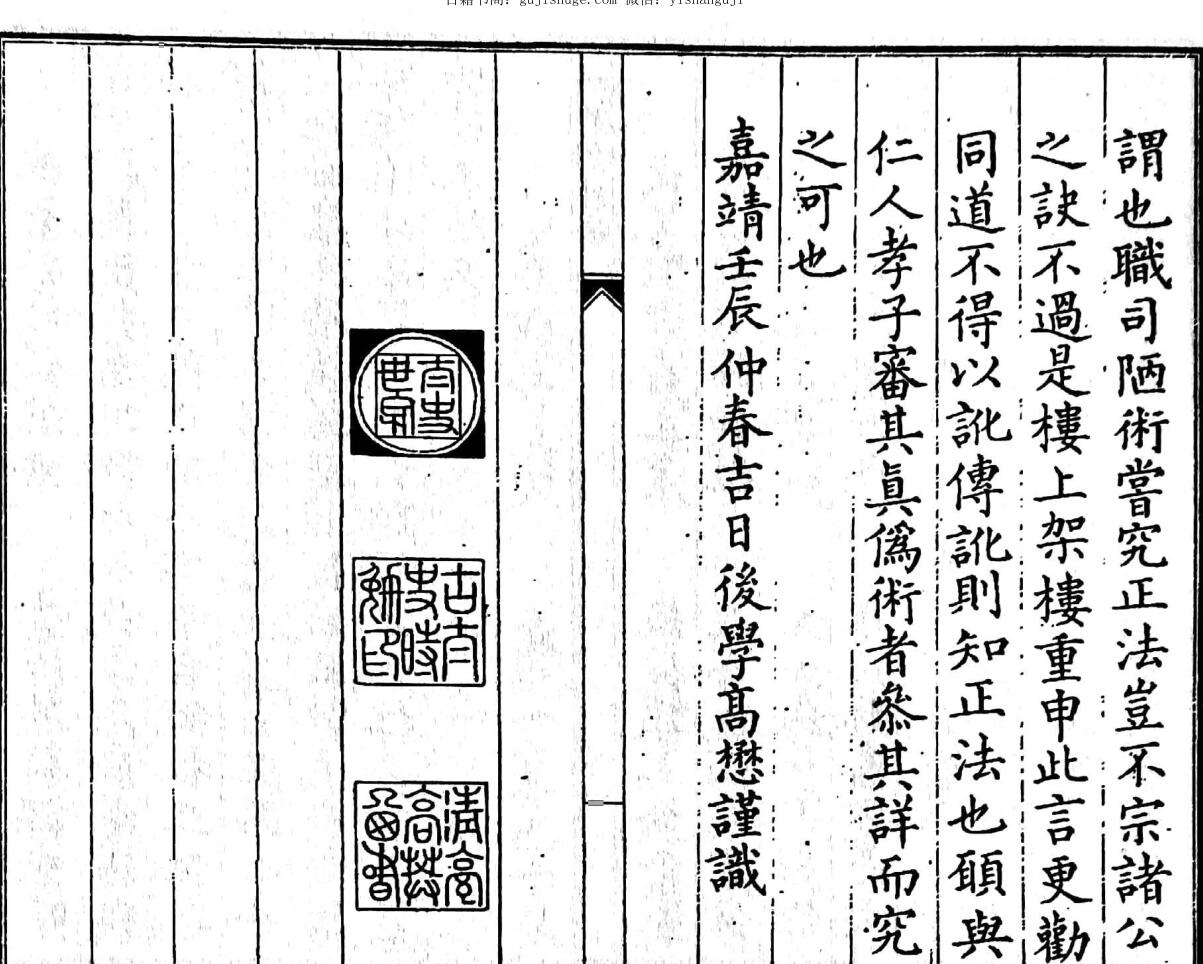 古籍书阁：gujishuge.com 微信：yishanguji
謂也職司陋術嘗究正法豈不宗諸公
之訣不過是樓上架樓重申此言更勸
同道不得以訛傳訛則知正法也願與
仁人孝子審其眞僞術者叅其詳而究
之可也
嘉靖壬辰仲春吉日後學髙懋謹識
太史世家